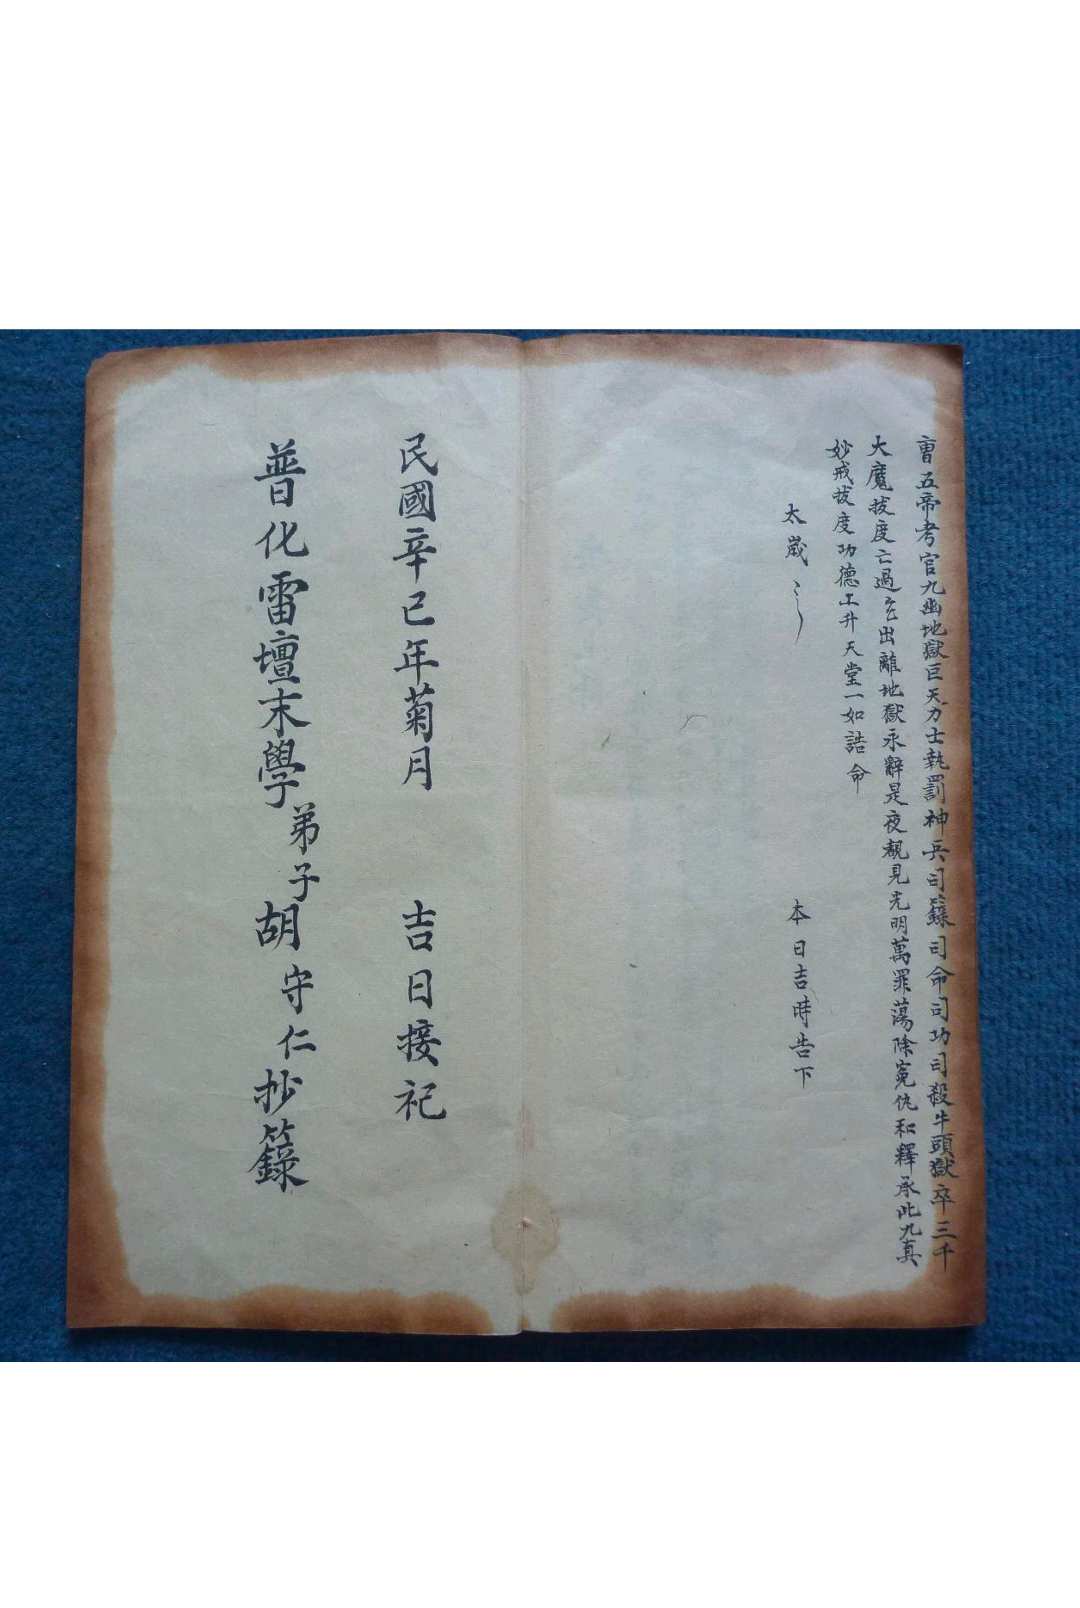 曹五帝考官九幽地獄巨天力士執罰神兵司籙司命司功司殺牛頭獄卒三千
大魔拔度亡過乞出離地獄永辭是夜覩見光明萬罪蕩除寃仇和釋承此九真
妙戒拔度功德上升天堂一如誥命
太歲 本日吉時告下
民國辛巳年菊月 吉日接祀
普化雷壇末學弟子胡守仁抄籙